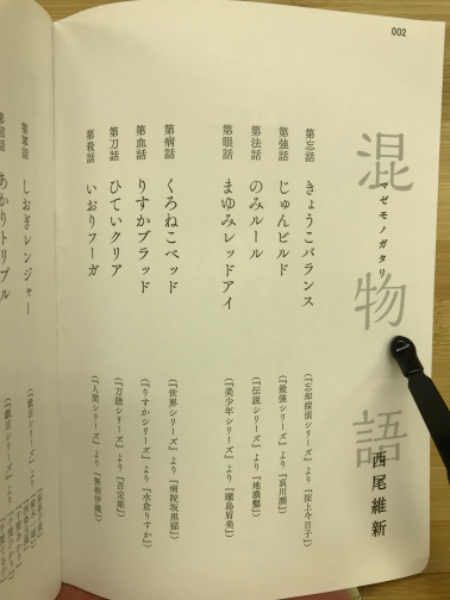 002
混物語
マゼモノガタリ
西尾維新
第忘話 きょうこバランス (『忘却探偵シリーズ』より『掟上今日子』)
第強話 じゅんビルド (『最強シリーズ』より『哀川潤』)
第法話 のみルール (『伝説シリーズ』より『地濃鑿』)
第眼話 まゆみレッドアイ (『美少年シリーズ』より『瞳島眉美』)
第病話 くろねこベッド (『世界シリーズ』より『病院坂黒猫』)
第血話 りすかブラッド (『りすかシリーズ』より『水倉りすか』)
第刀話 ひていクリア (『刀語シリーズ』より『否定姫』)
第殺話 いおりフーガ (『人間シリーズ』より『無桐伊織』)
しおぎレンジャー
あかりトリプル